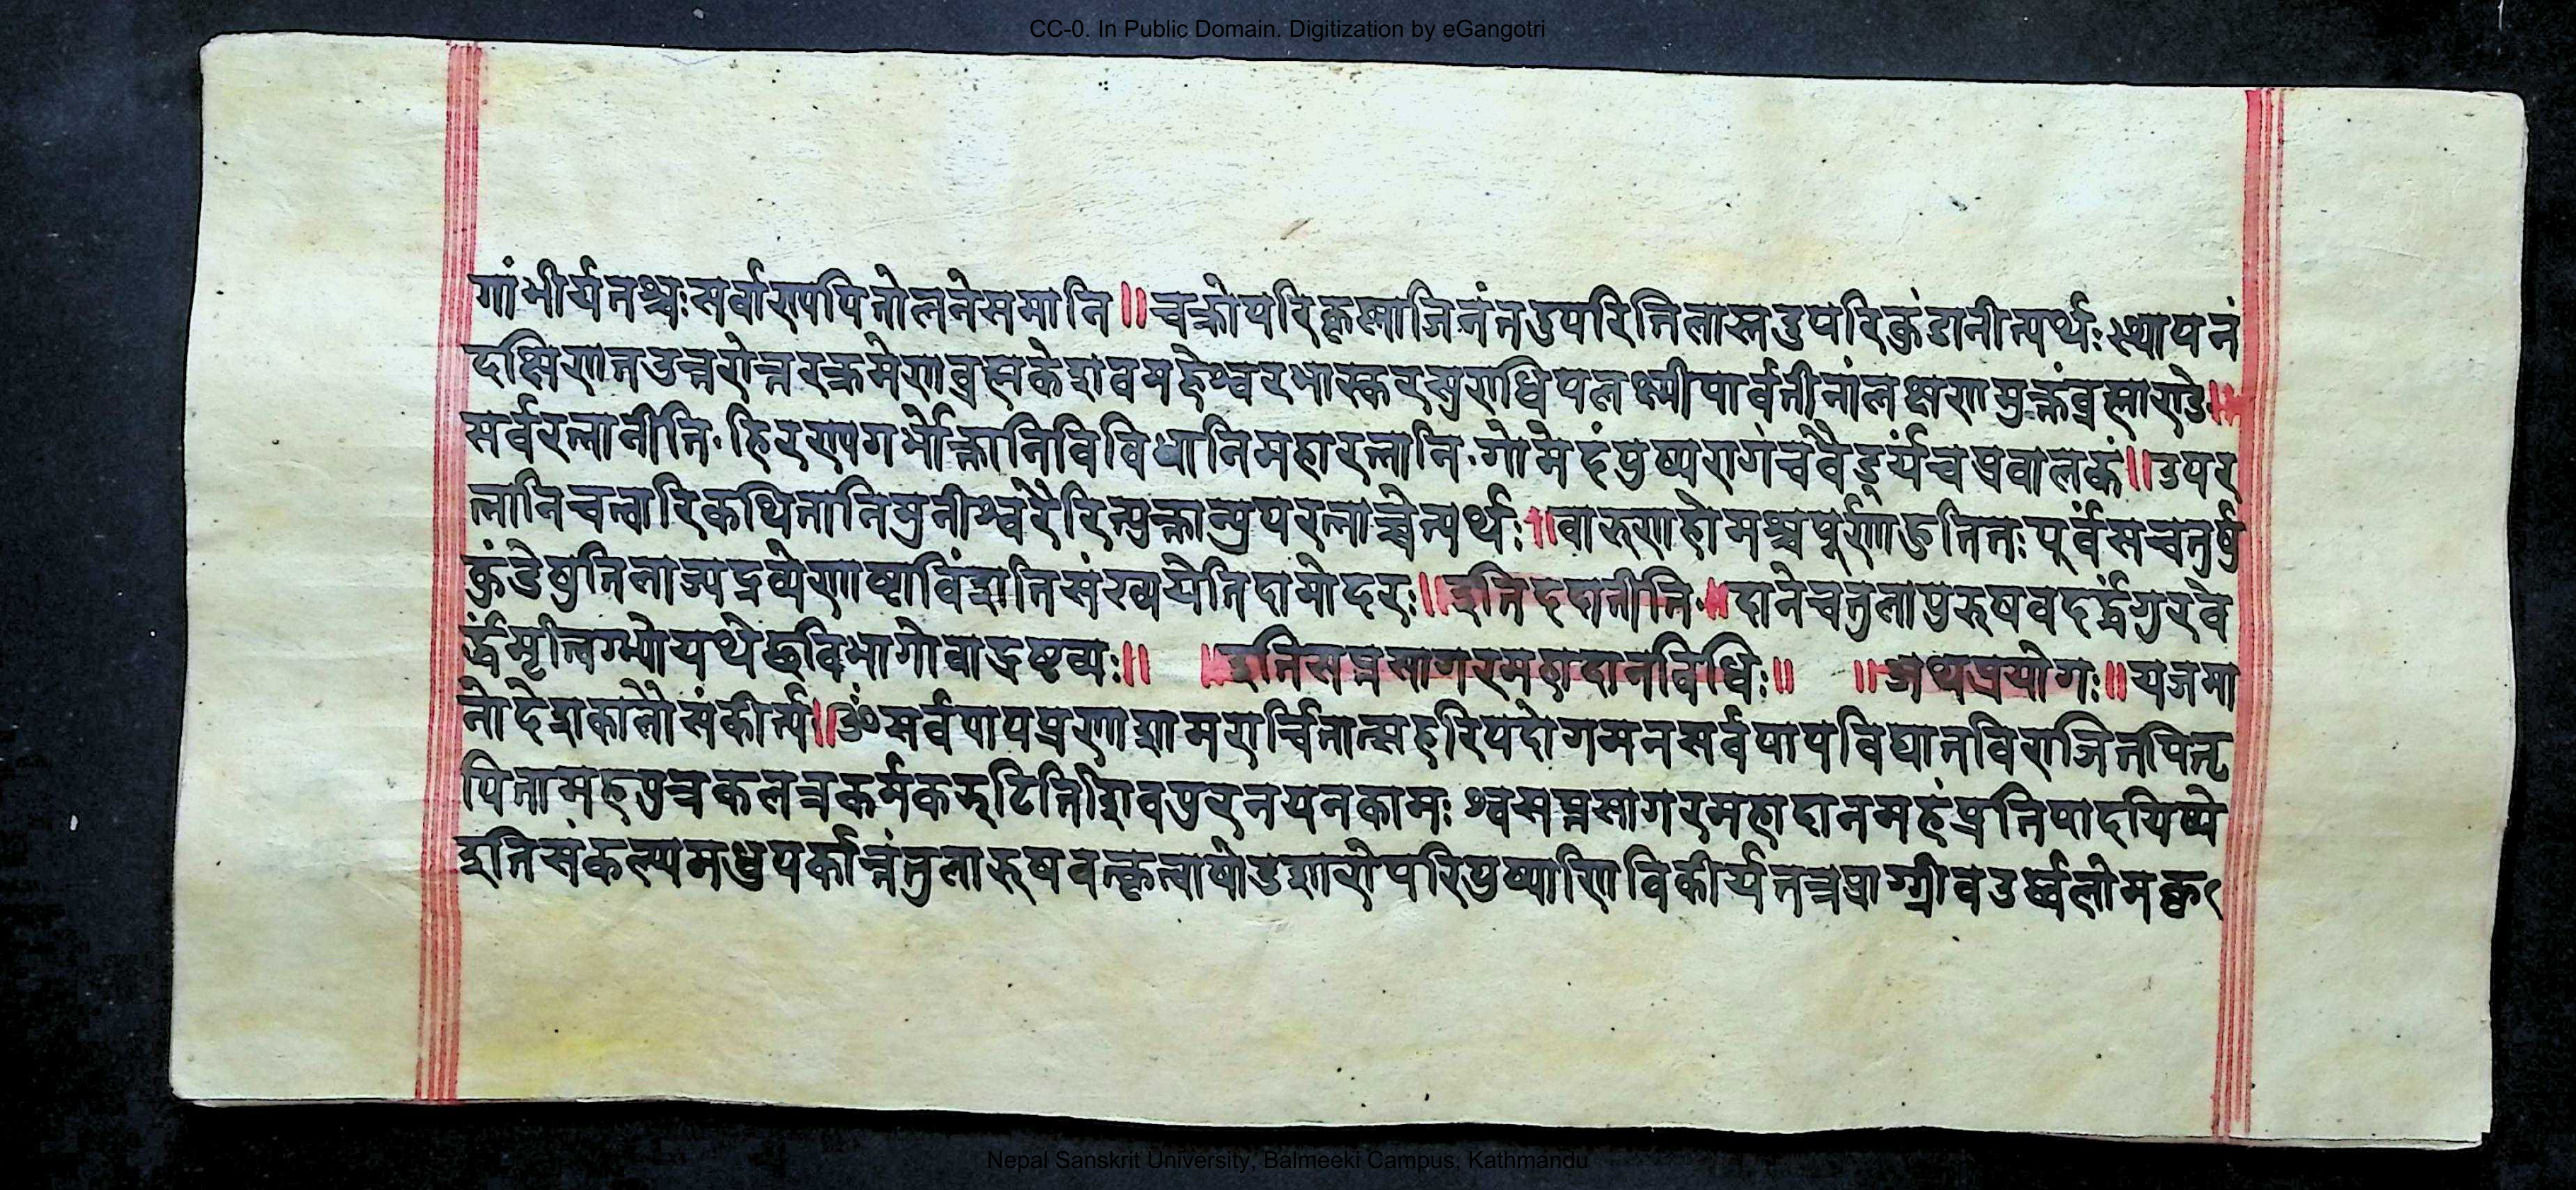 CC-0. In Public Domain. Digitization by eGangotri
गांभीर्यतश्चःसर्वाण्यपितोलनेसमानि॥चक्रोपरिकृष्णाजिनंतउपरितिलास्तदुपरिकुंडानीत्यर्थःस्थापनं
दक्षिणातउत्तरोत्तरक्रमेणब्रह्मकेशवमहेश्वरभास्करसुराधिपलक्ष्मीपार्वतीनांलक्षणमुक्तंब्रह्माण्डे॥
सर्वरत्नानीति॰हिरण्यगर्भोक्तानिविविधानिमहारत्नानि॰गोमेदंपुष्परागंचवैडूर्यंचप्रवालकं॥उपर
त्नानिचत्वारिकथितानिमुनीश्वरैरित्युक्तान्युपरत्नाञ्चेत्यर्थः॥वारुणहोमश्चपूर्णाहुतितःपूर्वंसचतुर्षु
कुंडेषुतिलाज्यद्रव्येणाष्टाविंशतिसंख्ययेतिदामोदरः॥इतिददानीति॰॥दानेचतुलापुरुषवदर्द्धंगुरवे
र्द्धमृत्विग्भ्योयथेष्ठविभागोवाद्रष्टव्यः॥ ॥इतिसप्तसागरमहादानविधिः॥ ॥अथप्रयोगः॥यजमा
नोदेशकालौसंकीर्त्य॥ॐसर्वपापप्रणाशामरार्चितात्सहरिपदोगमनसर्वपापविघातविराजितपितृ
पितामहपुत्रकलत्रकर्मकरुटितिशिवपुरनयनकामःश्वसप्तसागरमहादानमहंप्रतिपादयिष्ये
इतिसंकल्प्यमधुपर्कान्तंतुलारुषवत्कृत्वाषोडशारोपरिपुष्पाणिविकीर्यतत्रप्राग्ग्रीवउर्ध्वलोमकृ
Nepal Sanskrit University, Balmeeki Campus, Kathmandu